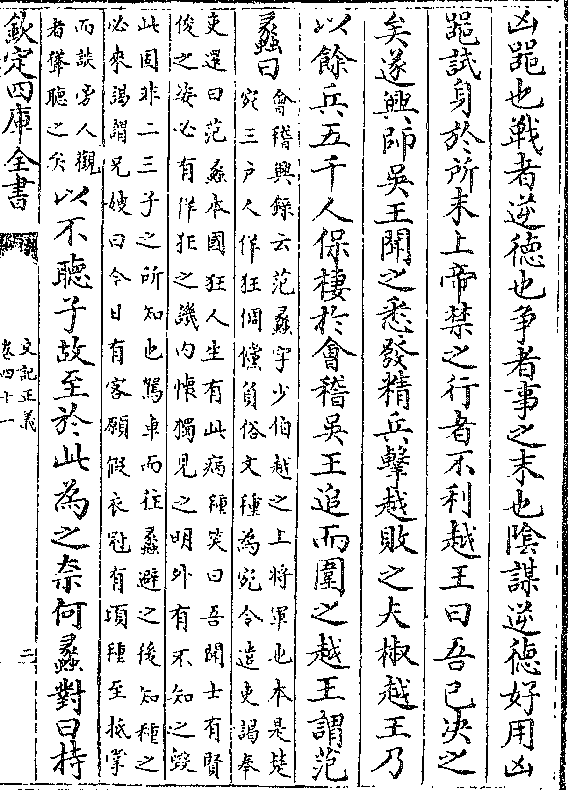 凶噐也戰者逆德也爭者事之末也隂謀逆德好用凶
噐試身於所末上帝禁之行者不利越王曰吾已決之
矣遂興師吳王聞之悉發精兵擊越敗之夫椒越王乃
以餘兵五千人保棲於會稽吳王追而圍之越王謂范
蠡曰
會稽典錄云范蠡字少伯越之上將軍也本是楚
宛三户人佯狂倜儻負俗文種為宛令遣吏謁奉
吏還曰范蠡本國狂人生有此病種笑曰吾聞士有賢
俊之姿必有佯狂之譏内懷獨見之明外有不知之毁
此固非二三子之所知也駕車而往蠡避之後知種之
必來謁謂兄嫂曰今日有客願假衣冠有頃種至抵掌
而談旁人觀
者聳聽之矣
以不聽子故至於此為之奈何蠡對曰持
欽定四庫全書
史記正義
卷四十一
二